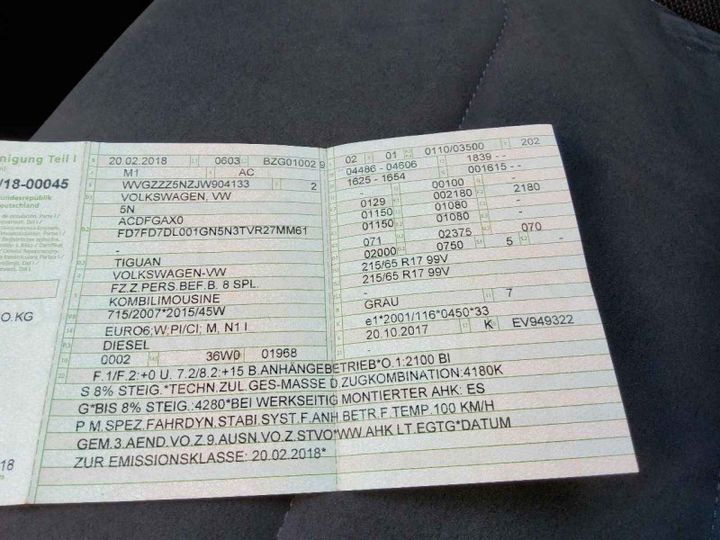 nigung Teil I
/18-00045
undesrepublik
eutschland
O.KG
18
20.02.2018 0603 BZG01002 9
M1 AC
WVGZZZ5NZJW904133 2
VOLKSWAGEN, VW
5N
ACDFGAX0
FD7FD7DL001GN5N3TVR27MM61
-
TIGUAN
VOLKSWAGEN-VW
FZ.Z.PERS.BEF.B. 8 SPL.
KOMBILIMOUSINE
715/2007*2015/45W
EURO6;W;PI/CI; M, N1 I
DIESEL
0002 36W0 01968
02 01 0110/03500 202
04486 - 04606 1839 - -
1625 - 1654 001615 - -
- 00100 -
0129 002180 2180
01150 01080 -
01150 01080 -
071 02375 070
02000 0750 5 -
215/65 R17 99V
215/65 R17 99V
-
GRAU 7
e1*2001/116*0450*33
20.10.2017 K EV949322
F.1/F.2:+0 U. 7.2/8.2:+15 B.ANHÄNGEBETRIEB*O.1:2100 BI
S 8% STEIG.*TECHN.ZUL.GES-MASSE D.ZUGKOMBINATION:4180K
G*BIS 8% STEIG.:4280*BEI WERKSEITIG MONTIERTER AHK: ES
P M.SPEZ.FAHRDYN.STABI.SYST.F.ANH.BETR.F.TEMP.100 KM/H
GEM.3.AEND.VO.Z.9.AUSN.VO.Z.STVO*WW.AHK LT.EGTG*DATUM
ZUR EMISSIONSKLASSE: 20.02.2018*